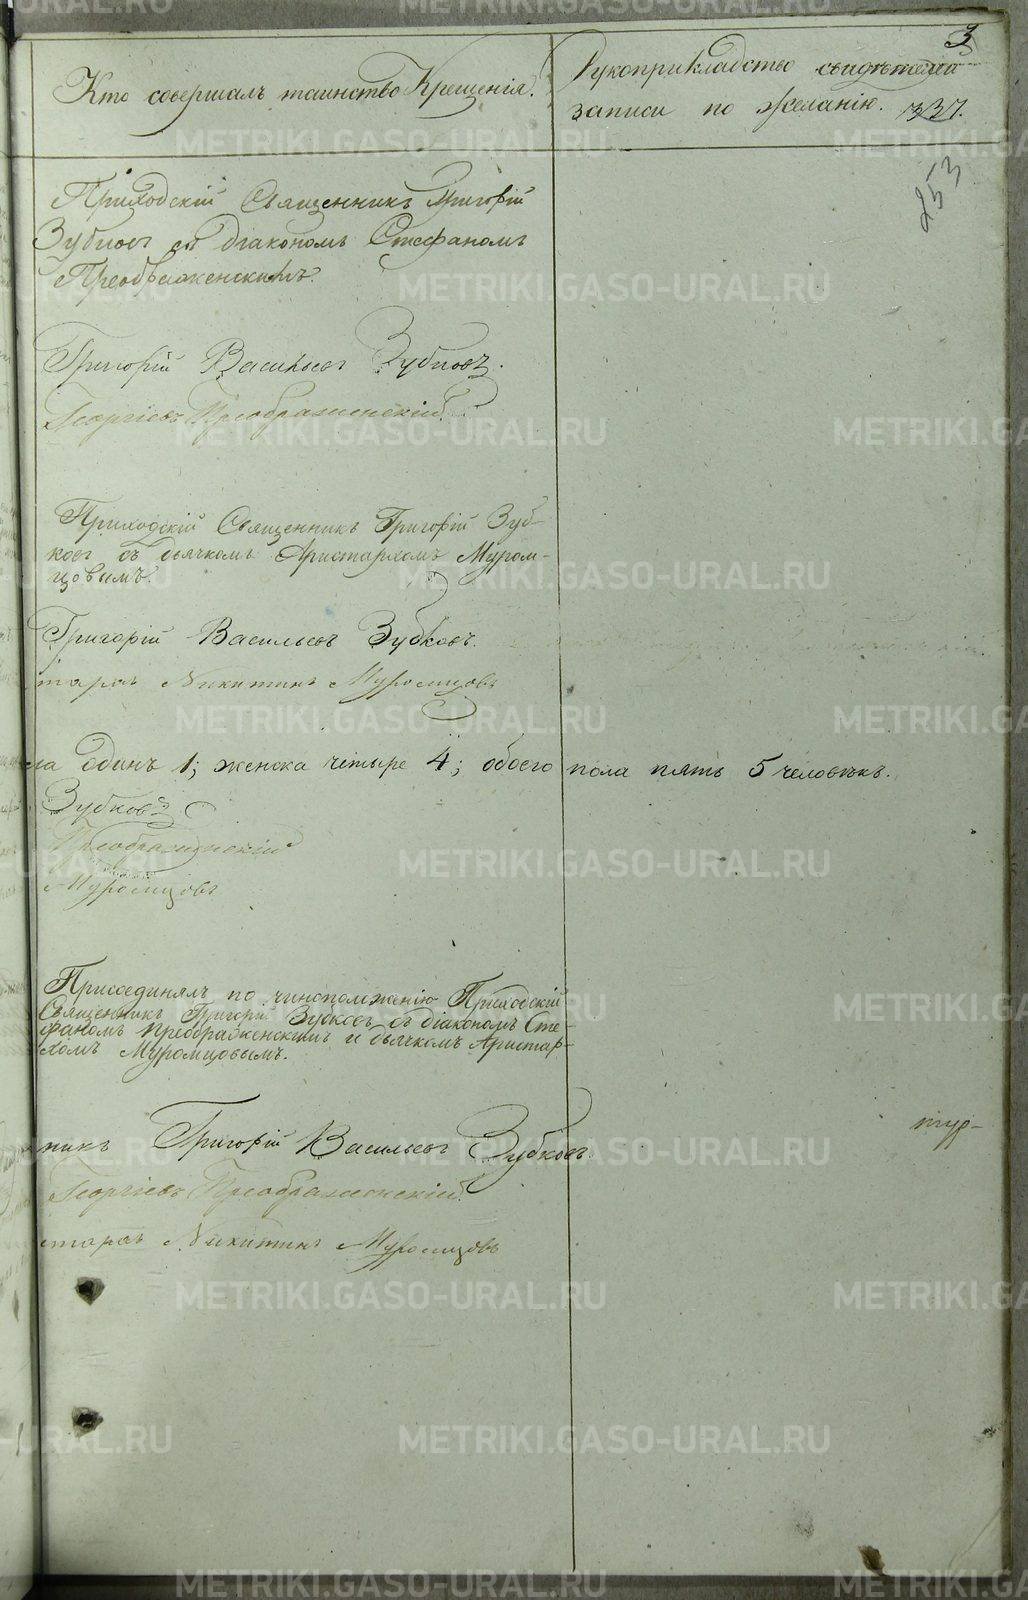 3
Кто совершалъ таинство Крещенія.
Рукоприкладство свидѣтелей
записи по желанію. 337.
253
Приходскій Священникъ Григорій
Зубковъ съ діакономъ Стефаномъ
Преображенскимъ.
Григорій Васильевъ Зубковъ.
Георгіевъ Преображенскій.
Приходскій Священникъ Григорій Зуб-
ковъ съ дьячкомъ Аристархомъ Муром-
цовымъ.
Григорій Васильевъ Зубковъ.
тархъ Никитинъ Муромцовъ
ла одинъ 1; женска четыре 4; обоего пола пять 5 человѣкъ.
Зубковъ
Преображенскій
Муромцовъ
Присоединялъ по чиноположенію Приходскій
Священникъ Григорій Зубковъ съ діакономъ Сте-
фаномъ Преображенскимъ и дьячкомъ Аристар-
хомъ Муромцовымъ.
никъ Григорій Васильевъ Зубковъ.
Георгіевъ Преображенскій.
тархъ Никитинъ Муромцовъ
METRIKI.GASO-URAL.RU